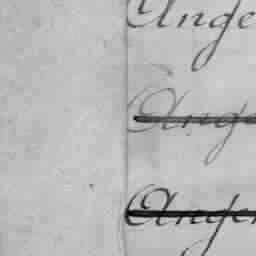 Ange
Ange
Anger